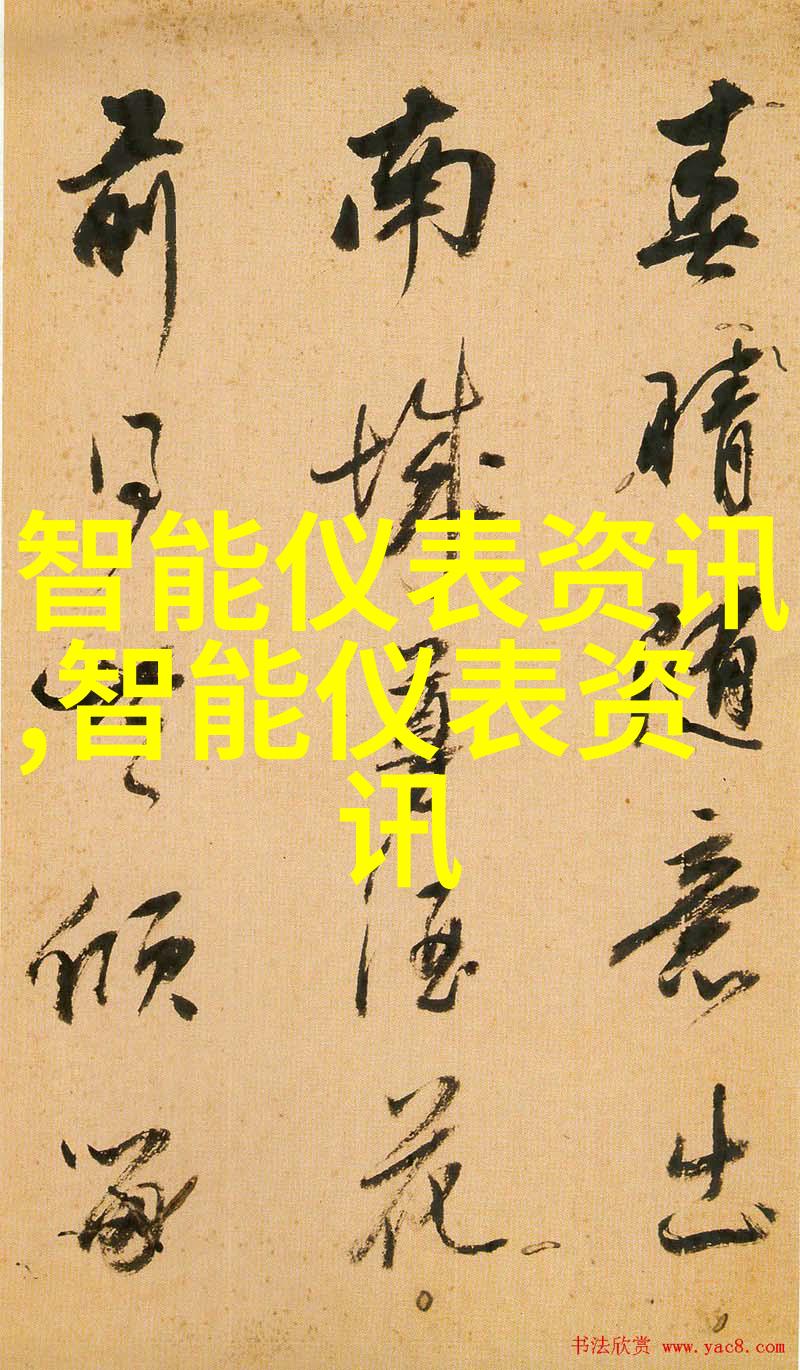 春晴随意出
南城尊酒花
前傾
智能仪表资讯
,智能仪表资
讯
书法欣赏 www.yac8.com